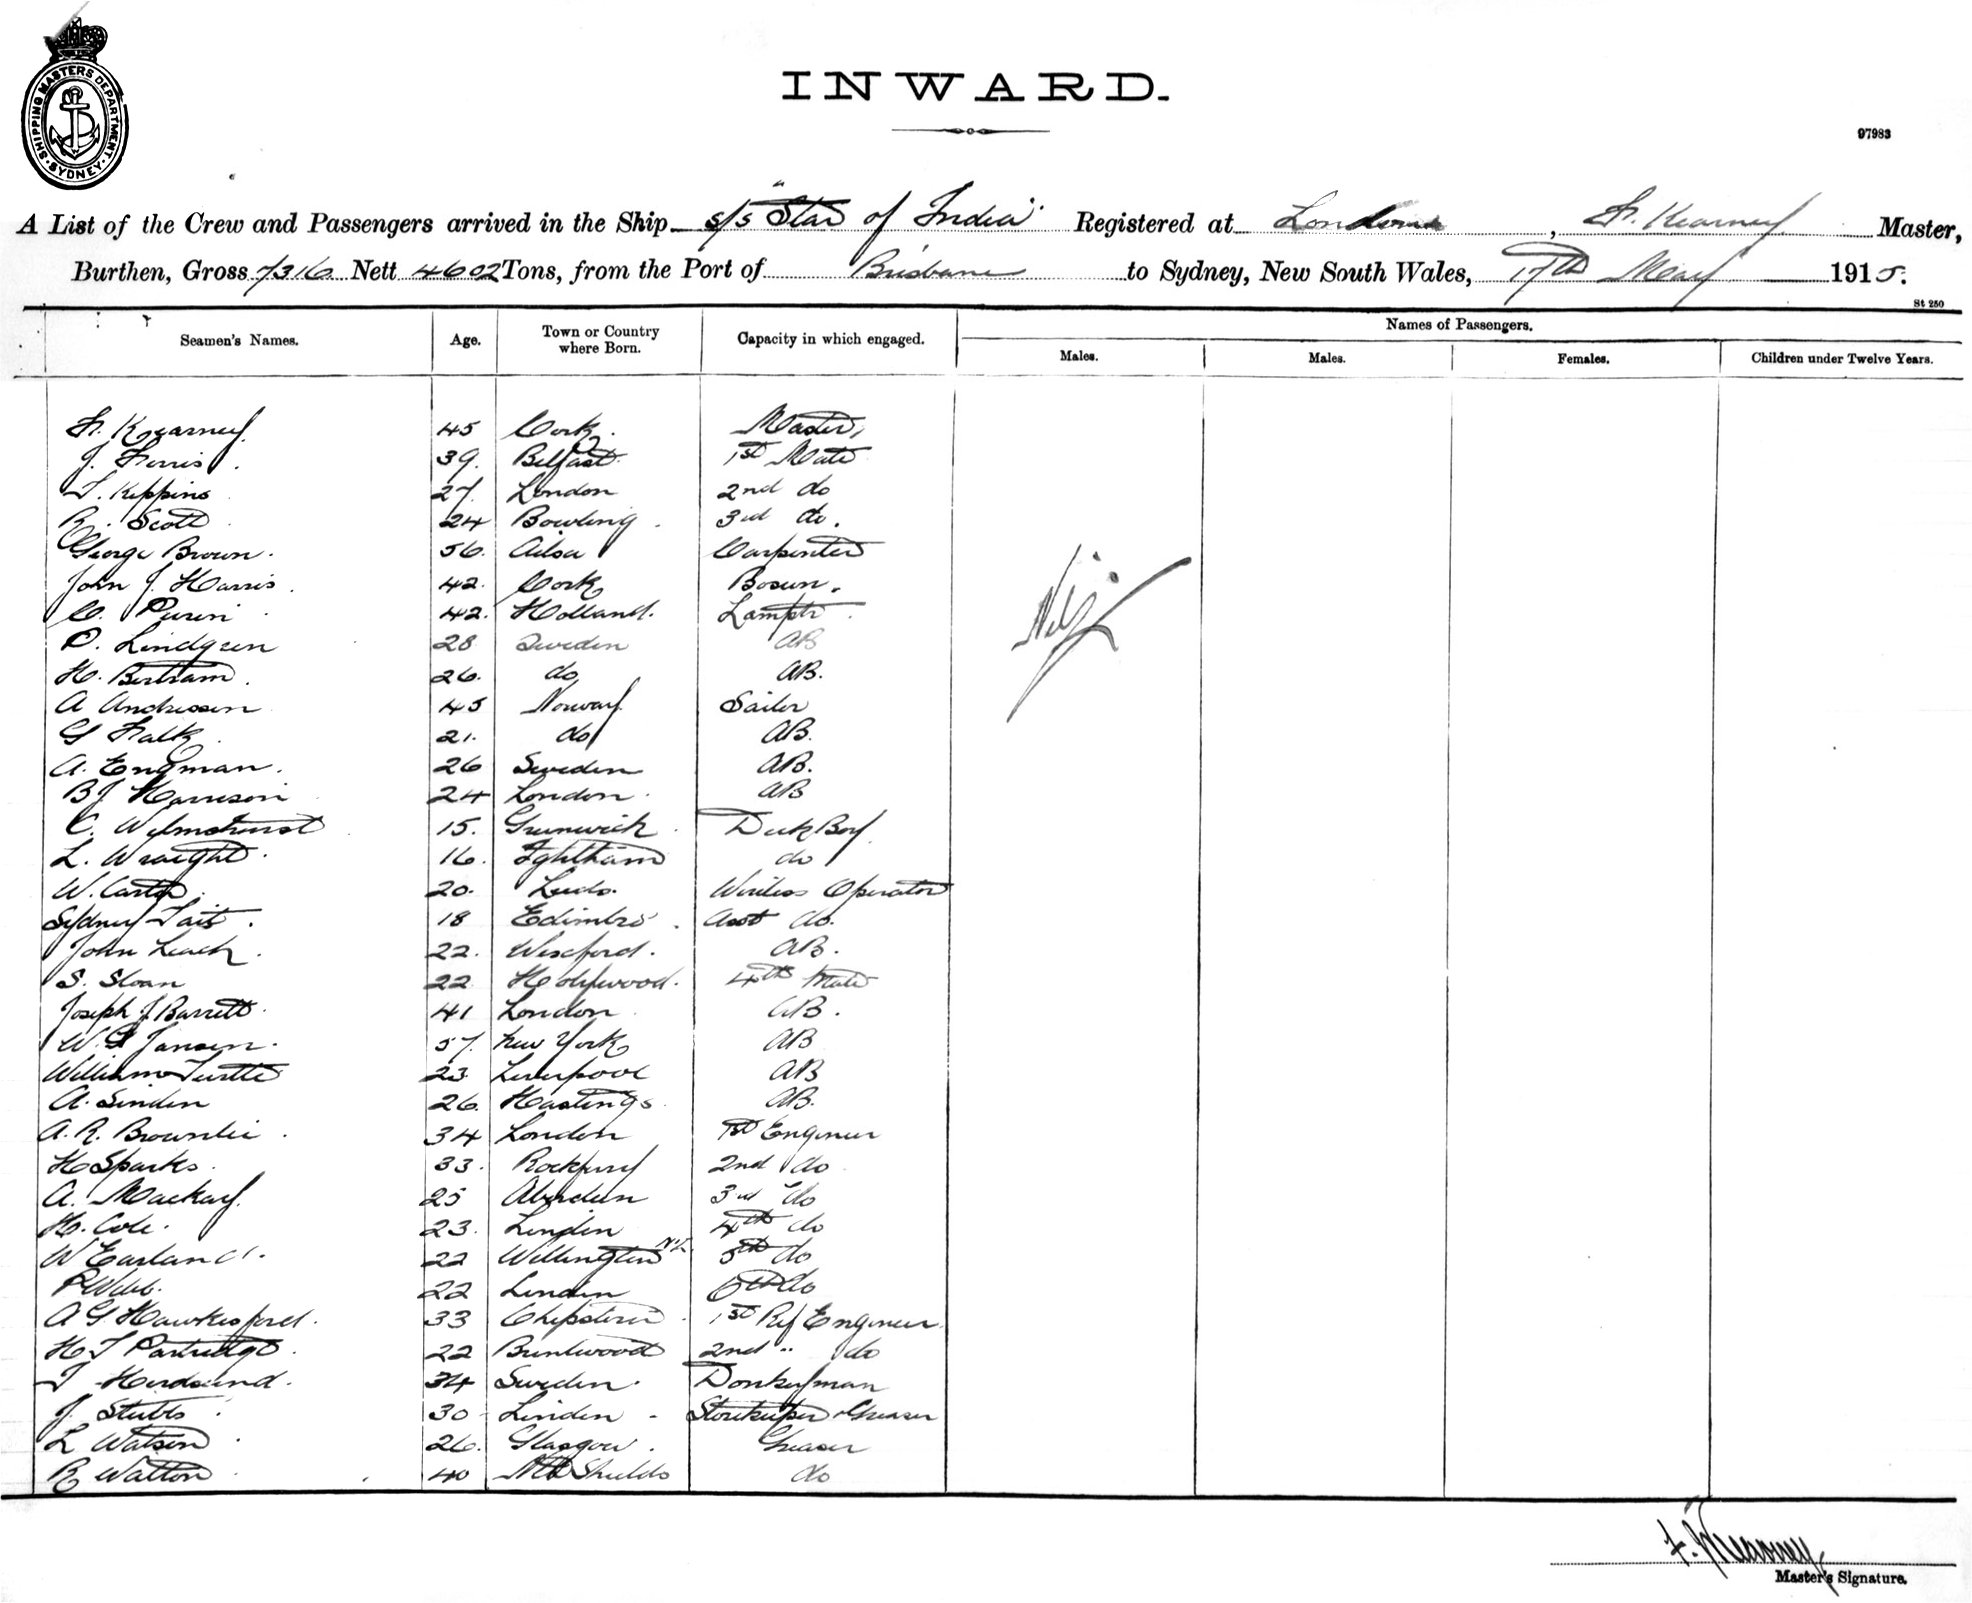 SHIPPING MASTERS DEPARTMENT · SYDNEY ·
INWARD.
97983
A List of the Crew and Passengers arrived in the Ship s/s "Star of India" Registered at London, Fr. Kearney Master,
Burthen, Gross 7316 Nett 4602 Tons, from the Port of Brisbane to Sydney, New South Wales, 17th May 1915.
St 250
Seamen's Names. Age. Town or Country where Born. Capacity in which engaged. Names of Passengers.
Males. Males. Females. Children under Twelve Years.
Fr. Kearney. 45 Cork. Master,
J. Ferris. 39. Belfast. 1st Mate
T. Kippins 27. London 2nd do
R. Scott 24 Bowling. 3rd do.
George Brown. 56. Ailsa Carpenter
John J. Harris. 42. Cork Bosun.
C. Purin 42. Holland. Lamptr.
O. Lindgren 28 Sweden AB
H. Bertram. 26. do AB.
A Andresen 45 Norway Sailor
G Falk. 21. do AB.
A. Engman. 26 Sweden AB.
BJ Harrison 24 London. AB
C. Wylmshurst 15. Greenwich. Deck Boy.
L. Wraight. 16. Ightham do
W. Carter. 20. Leeds. Wireless Operator
Sydney Tait. 18 Edimbro'. Asst do.
John Leach. 22. Wexford. AB.
S. Sloan 22 Holywood. 4th Mate
Joseph J Barrett. 41 London AB.
W. G Jansen. 57. New York AB
William Turtle 23 Liverpool AB
A. Sinden 26. Hastings AB.
A. R. Brownlie. 34 London 1st Engineer
H Sparks. 33. Rockferry 2nd do
A. Mackay. 25 Aberdeen 3rd do
H. Cole. 23. London 4th do
W Earland. 22 Wellington N.Z. 5th do
P Webb. 22 London 6th do
A G Hawkesford. 33 Chepstow. 1st Ref Engineer
H T Partridge. 22 Brentwood 2nd " do
T Herdsund. 34 Sweden. Donkeyman
J. Stubbs. 30 London - Storekeeper & Greaser
L Watson. 26. Glasgow. Greaser
R Walton. 40 Nth Shields do
Nil
F. Kearney
Master's Signature.